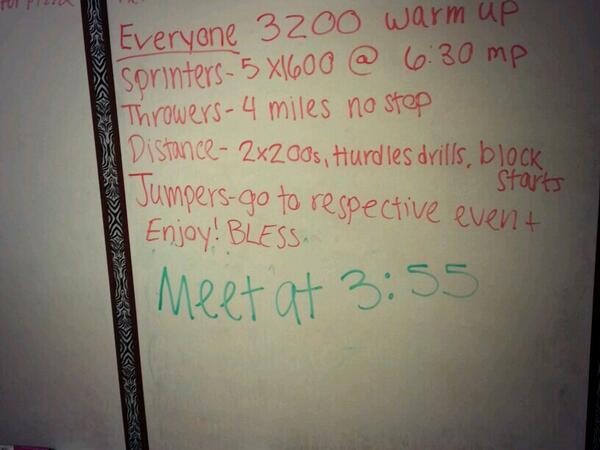 Everyone 3200 warm up
Sprinters- 5 x1600 @ 6:30 mp
Throwers- 4 miles no stop
Distance- 2x200s, Hurdles drills, block starts
Jumpers-go to respective event
Enjoy! BLESS.
Meet at 3:55